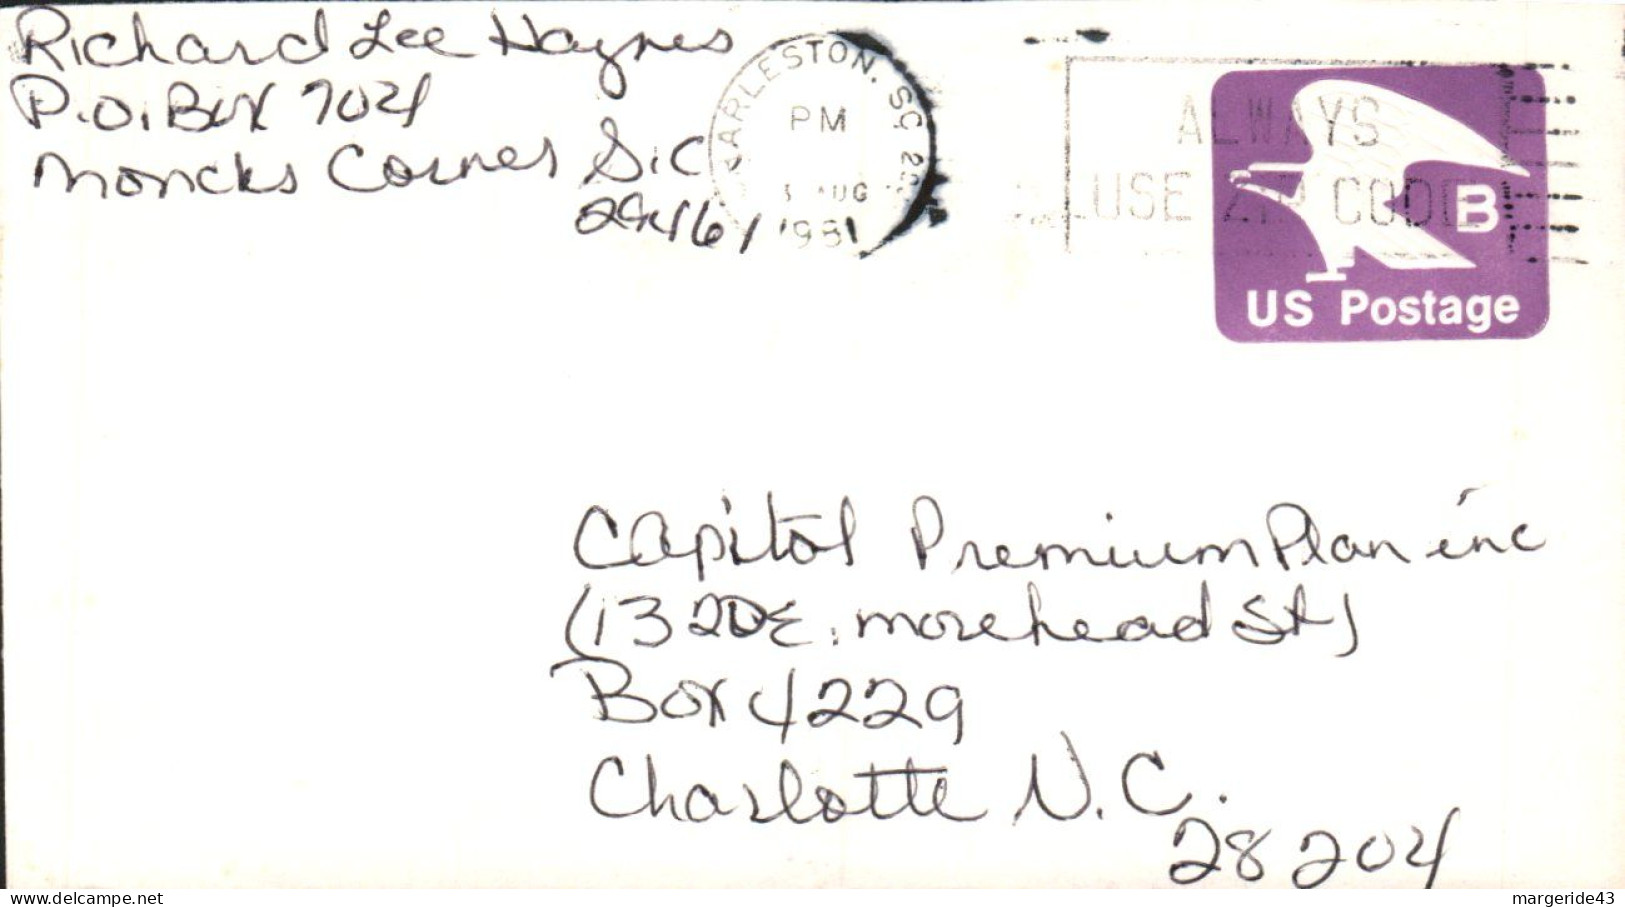 Richard Lee Haynes
P.O. Box 704
Moncks Corner S.C
29461
CHARLESTON, SC
PM
AUG
1981
ALWAYS
USE ZIP CODE
B
US Postage
Capitol Premium Plan inc
(1320 E. morehead St)
Box 4229
Charlotte N.C.
28204
delcampe.net
margeride43